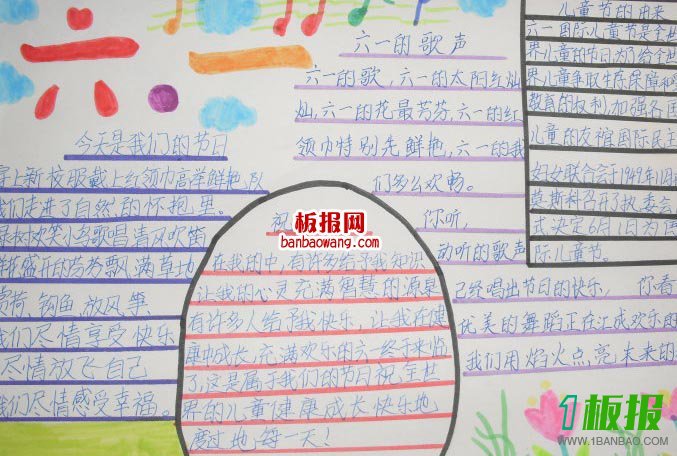 六一
六一的歌声
六一的歌，六一的太阳红灿
灿，六一的花最芳芬，六一的红
领巾特别先鲜艳，六一的我
们多么欢畅。
你听，
动听的歌声
已经唱出节日的快乐， 你看
优美的舞蹈正在汇成欢乐的
我们用焰火点亮未来的
儿童节的用来
六一国际儿童节是全世
界儿童的节日为了给全世
界儿童争取生存保障和
教育的权利，加强各国
儿童的友谊国际民主
妇女联合会于1949年11月
莫斯科召开执委会
式决定6月1日为
际儿童节。
今天是我们的节日
穿上新校服戴上红领巾高举鲜艳队
我们走进了自然的怀抱里。
欢笑小鸟歌唱清风吹笛
盛开的芳芬飘满草地
钓鱼放风筝
我们尽情享受快乐
尽情放飞自己
我们尽情感受幸福。
祝
在我的中，有许多给予我知识
让我的心灵充满智慧的源泉
有许多人给予我快乐，让我在健
康中成长，充满欢乐的六一终于来临
了，这是属于我们的节日祝全世
界的儿童健康成长快乐地
度过地每一天！
板报网
banbaowang.com
1板报
WWW.1BANBAO.COM